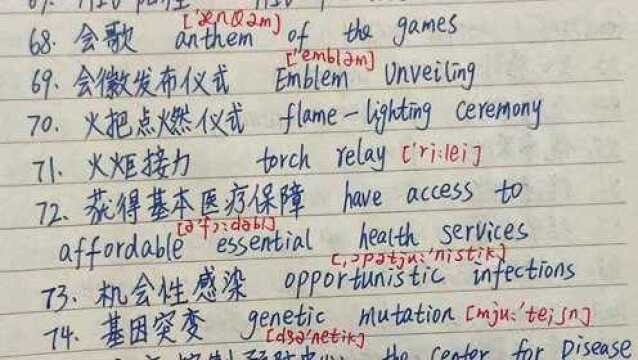 ['ænθəm]
68. 会歌 anthem of the games
['embləm]
69. 会徽发布仪式 Emblem Unveiling
70. 火把点燃仪式 flame-lighting ceremony
71. 火炬接力 torch relay ['ri:lei]
72. 获得基本医疗保障 have access to
[ə'fɔ:dəbl]
affordable essential health services
[,ɔpətju:'nistik]
73. 机会性感染 opportunistic infections
74. 基因突变 genetic mutation [mju:'teiʃn]
[dʒə'netik]
the Center for Disease